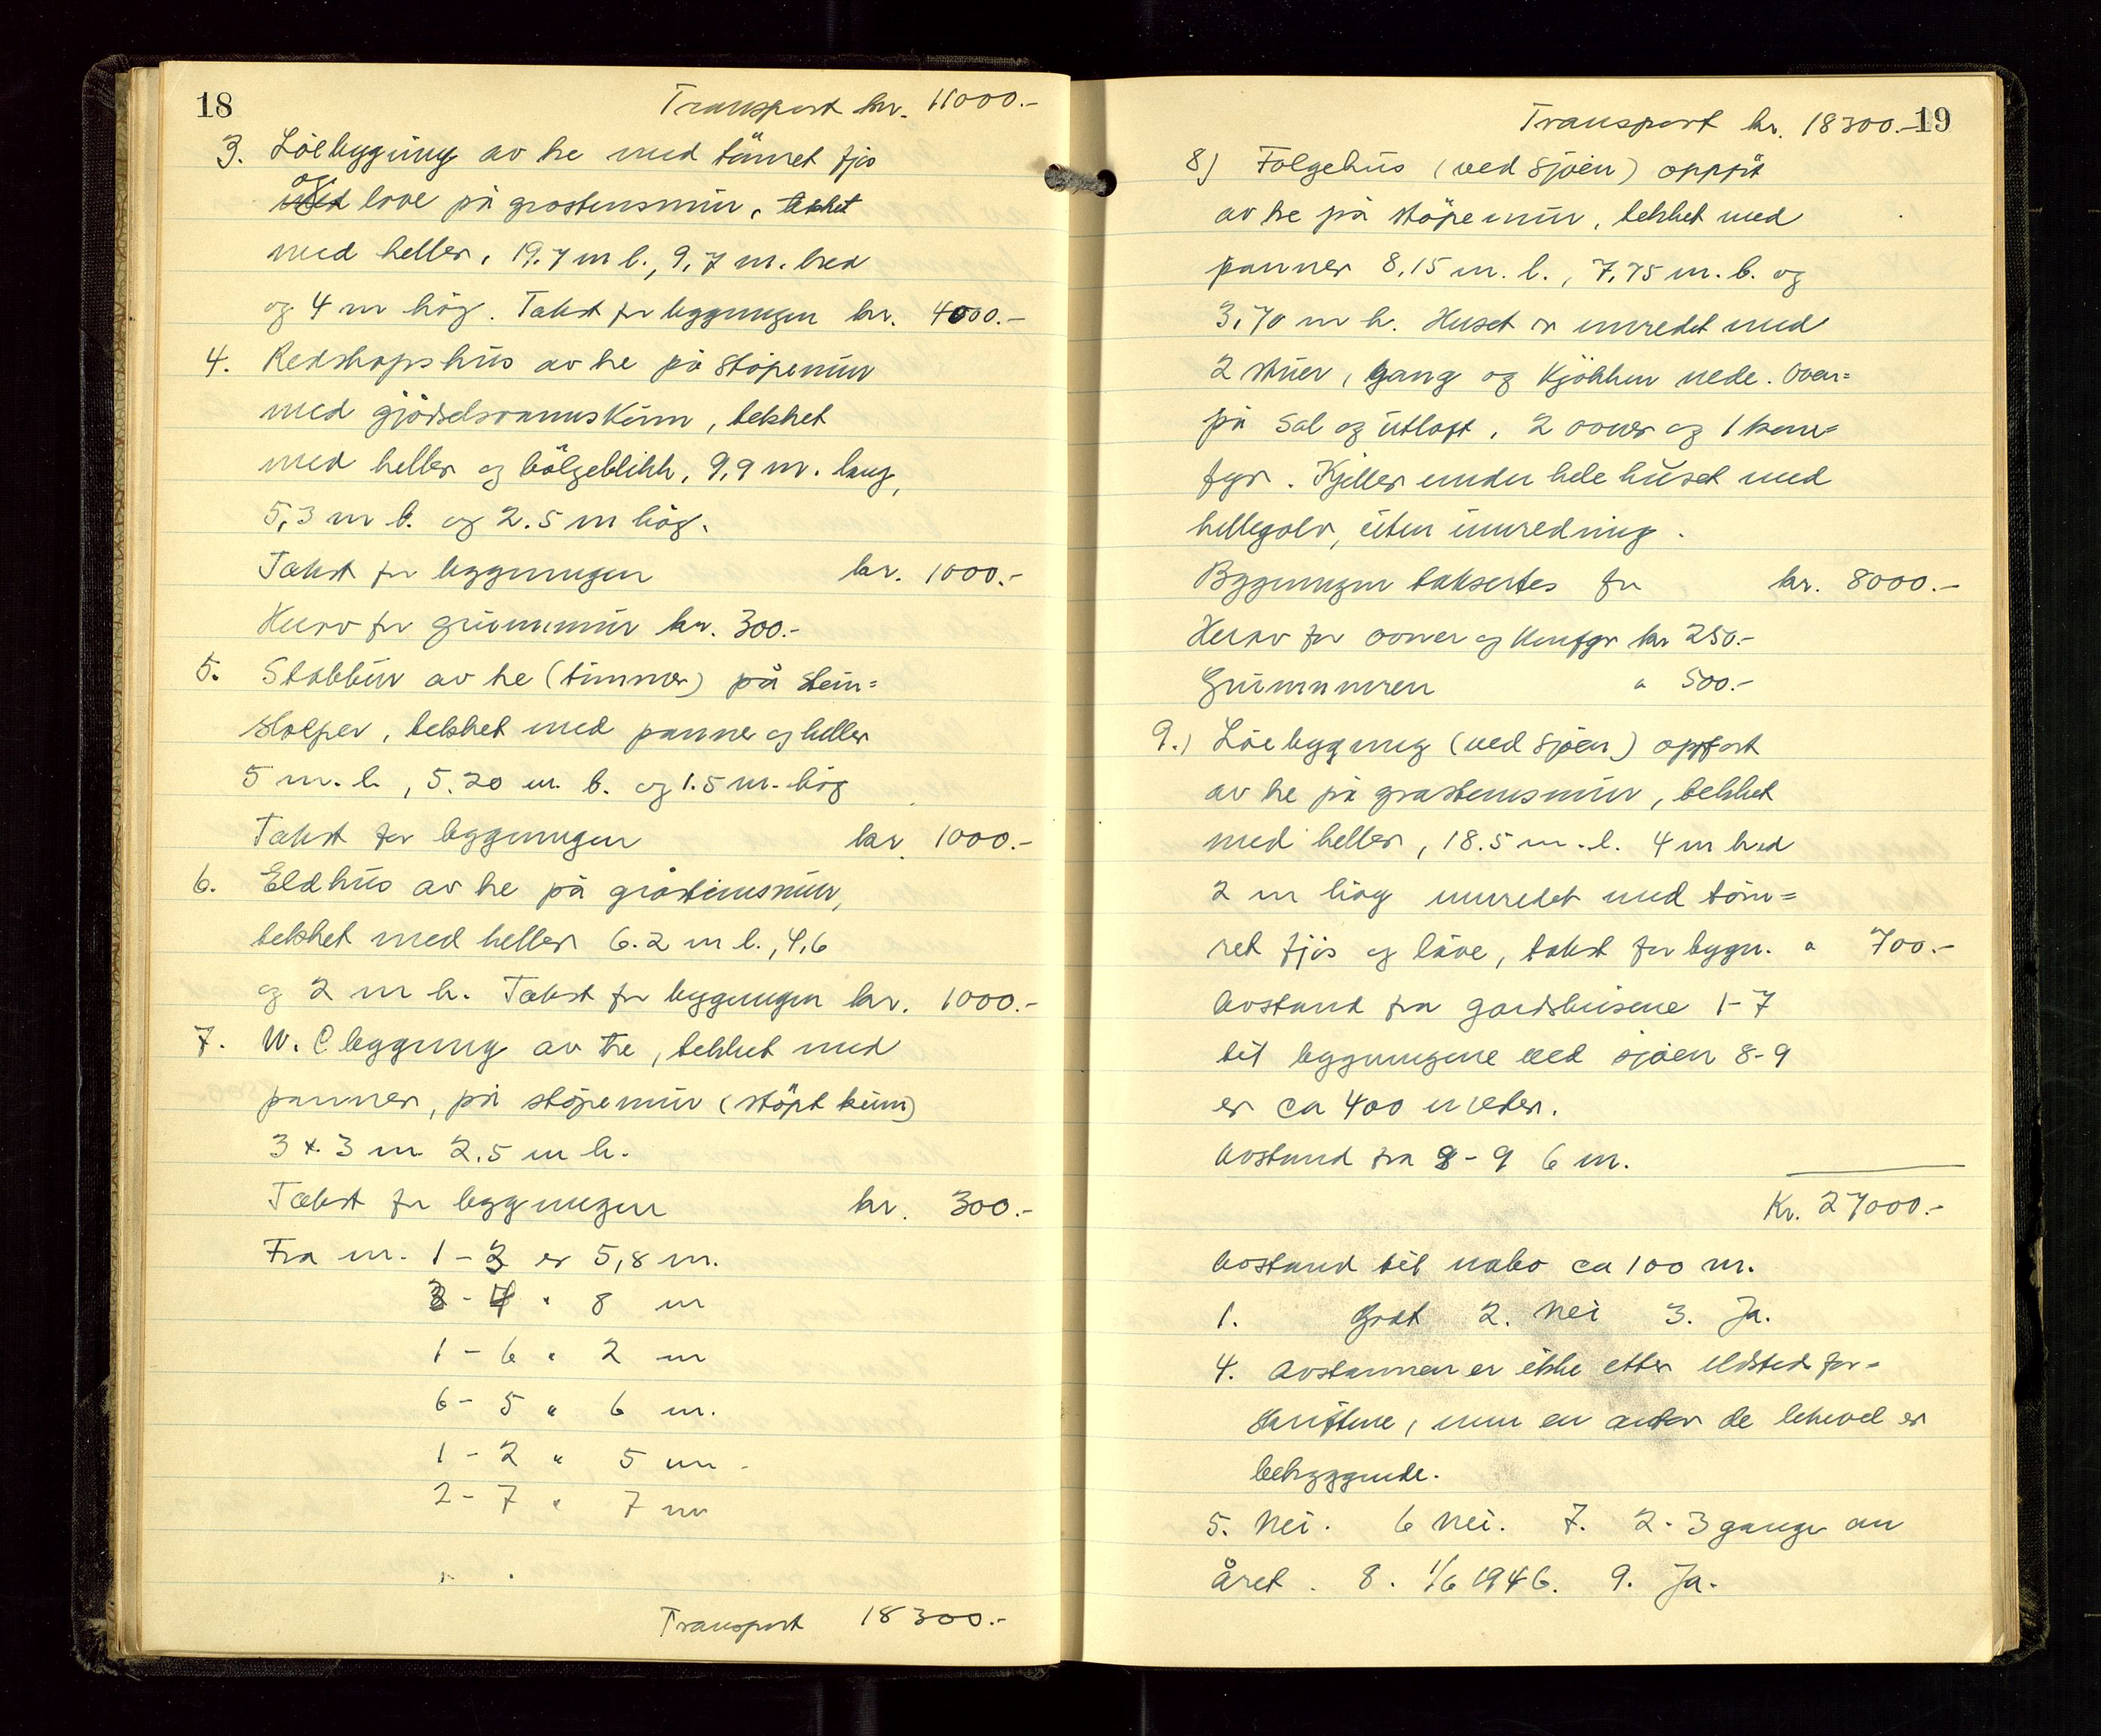 18
Transport kr. 11000.-
3. Löebygning av tre med tömret fjös
og
med love på grostensmur, tekket
med heller, 19.7 m l., 9,7 m. bred
og 4 m hög. Takst for bygningen kr. 4000.-
4. Redskapshus av tre på stöpemur
med gjödselvannskum, tekket
med heller og bölgeblikk, 9,9 m. lang,
5,3 m b. og 2.5 m hög.
Takst for bygningen kr. 1000.-
Herav for grunnmur kr. 300.-
5. Stabbur av tre (timmer) på stein=
stolper, tekket med panner og heller
5 m. l., 5.20 m. b. og 1.5 m. hög
Takst for bygningen kr. 1000.-
6. Eldhus av tre på gråsteinsmur,
tekket med heller 6.2 m l., 4,6
og 2 m h. Takst for bygningen kr. 1000.-
7. W.C bygning av tre, tekket med
panner, på stöpemur (stöpt kum)
3 x 3 m 2.5 m h.
Takst for bygningen kr. 300.-
Fra nr. 1 - 3 er 5,8 m.
3 - 4 " 8 m
1 - 6 " 2 m
6 - 5 " 6 m.
1 - 2 " 5 m
2 - 7 " 7 m
Transport 18300.-
Transport kr. 18300.-
19
8) Folgehus (ved sjöen) oppfört
av tre på stöpemur, tekket med
panner 8,15 m. l., 7,75 m. b. og
3,70 m h. Huset er innredet med
2 stuer, gang og kjökken nede. Oven=
på sal og utloft. 2 ovner og 1 kom=
fyr. Kjeller under hele huset med
hellegolv, uten innredning.
Bygningen taksertes for kr. 8000.-
Herav for ovner og komfyr kr 250.-
Grunnmuren " 500.-
9.) Löebygning (ved sjöen) oppfort
av tre på grastensmur, tekket
med heller, 18.5 m. l. 4 m bred
2 m hög innredet med töm=
ret fjös og låve, takst for bygn. " 700.-
Avstand fra gardshusene 1-7
til bygningene ved sjöen 8-9
er ca 400 meter.
Avstand fra 8-9 6 m.
Kr. 27000.-
Avstand til nabo ca 100 m.
1. Godt 2. Nei 3. Ja.
4. Avstannen er ikke etter ildsted for=
skriftene, men en anser de likevel er
betryggende.
5. Nei. 6 Nei. 7. 2-3 ganger om
året. 8. 1/6 1946. 9. Ja.